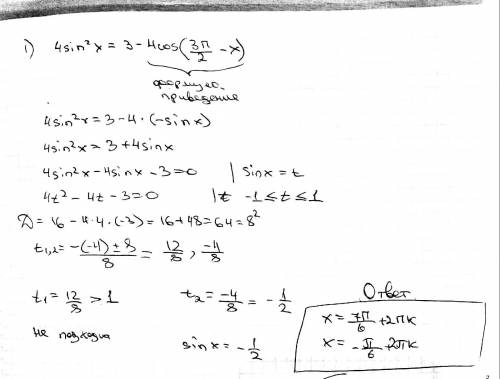 1) 4sin²x = 3 - 4cos(3π/2 - x)
формула
приведение
4sin²x = 3 - 4·(-sinx)
4sin²x = 3 + 4sinx
4sin²x - 4sinx - 3 = 0 | sinx = t
4t² - 4t - 3 = 0 | t -1 ≤ t ≤ 1
D = 16 - 4·4·(-3) = 16 + 48 = 64 = 8²
t₁,₂ = (-(-4) ± 8)/8 = 12/8 , -4/8
t₁ = 12/8 > 1 t₂ = -4/8 = -1/2
не подходит sinx = -1/2
Ответ
x = 7π/6 + 2πк
x = -π/6 + 2πк